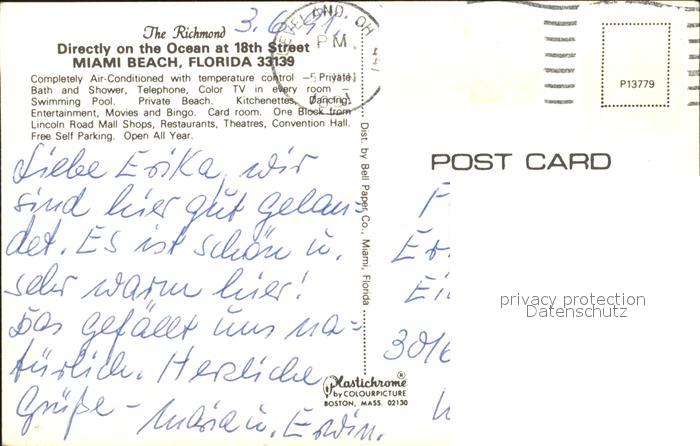 The Richmond
3.6.91
Directly on the Ocean at 18th Street
MIAMI BEACH, FLORIDA 33139
Completely Air-Conditioned with temperature control - Private
Bath and Shower, Telephone, Color TV in every room
Swimming Pool. Private Beach. Kitchenettes, Dancing,
Entertainment, Movies and Bingo. Card room. One Block from
Lincoln Road Mall Shops, Restaurants, Theatres, Convention Hall.
Free Self Parking. Open All Year.
CLEVELAND, OH
PM
Liebe Erika, wir
sind hier gut gelan-
det. Es ist schön u.
sehr warm hier!
Das gefällt uns na-
türlich. Herzliche
Grüße - Maria u. Erwin.
Dist. by Bell Paper Co., Miami, Florida
Plastichrome®
by COLOURPICTURE
BOSTON, MASS. 02130
P13779
POST CARD
F
Er
Ei
3016
privacy protection
Datenschutz